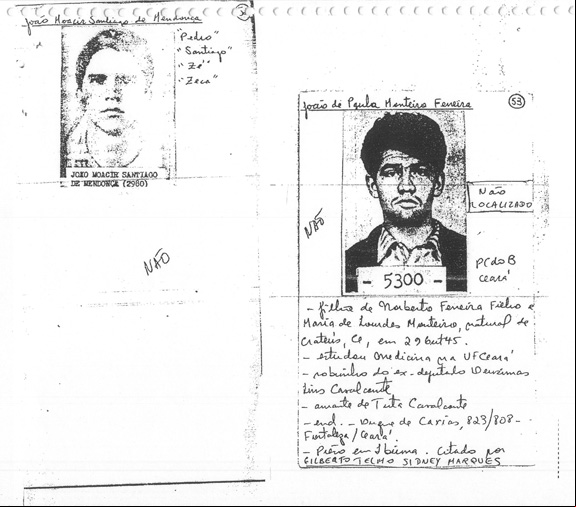 João Moacir Santiago de Mendonça
"Pedro"
"Santiago"
"Zé"
"Zeca"
JOAO MOACIR SANTIAGO
DE MENDONÇA (2960)
NÃO
João de Paula Monteiro Ferreira
53
NÃO
LOCALIZADO
NÃO
PCdoB
Ceará
- 5300 -
- filho de Norberto Ferreira Filho e
Maria de Lourdes Monteiro, natural de
Crateús, Ce, em 29 out 45.
- estudou medicina na UFCeará
- sobrinho do ex-deputado
Lins Cavalcante
- amante de Tita Cavalcante
- end. - Duque de Caxias, 823/808 -
Fortaleza/Ceará.
- Preso em Ibiuna. Citado por
GILBERTO TELMO SIDNEY MARQUES